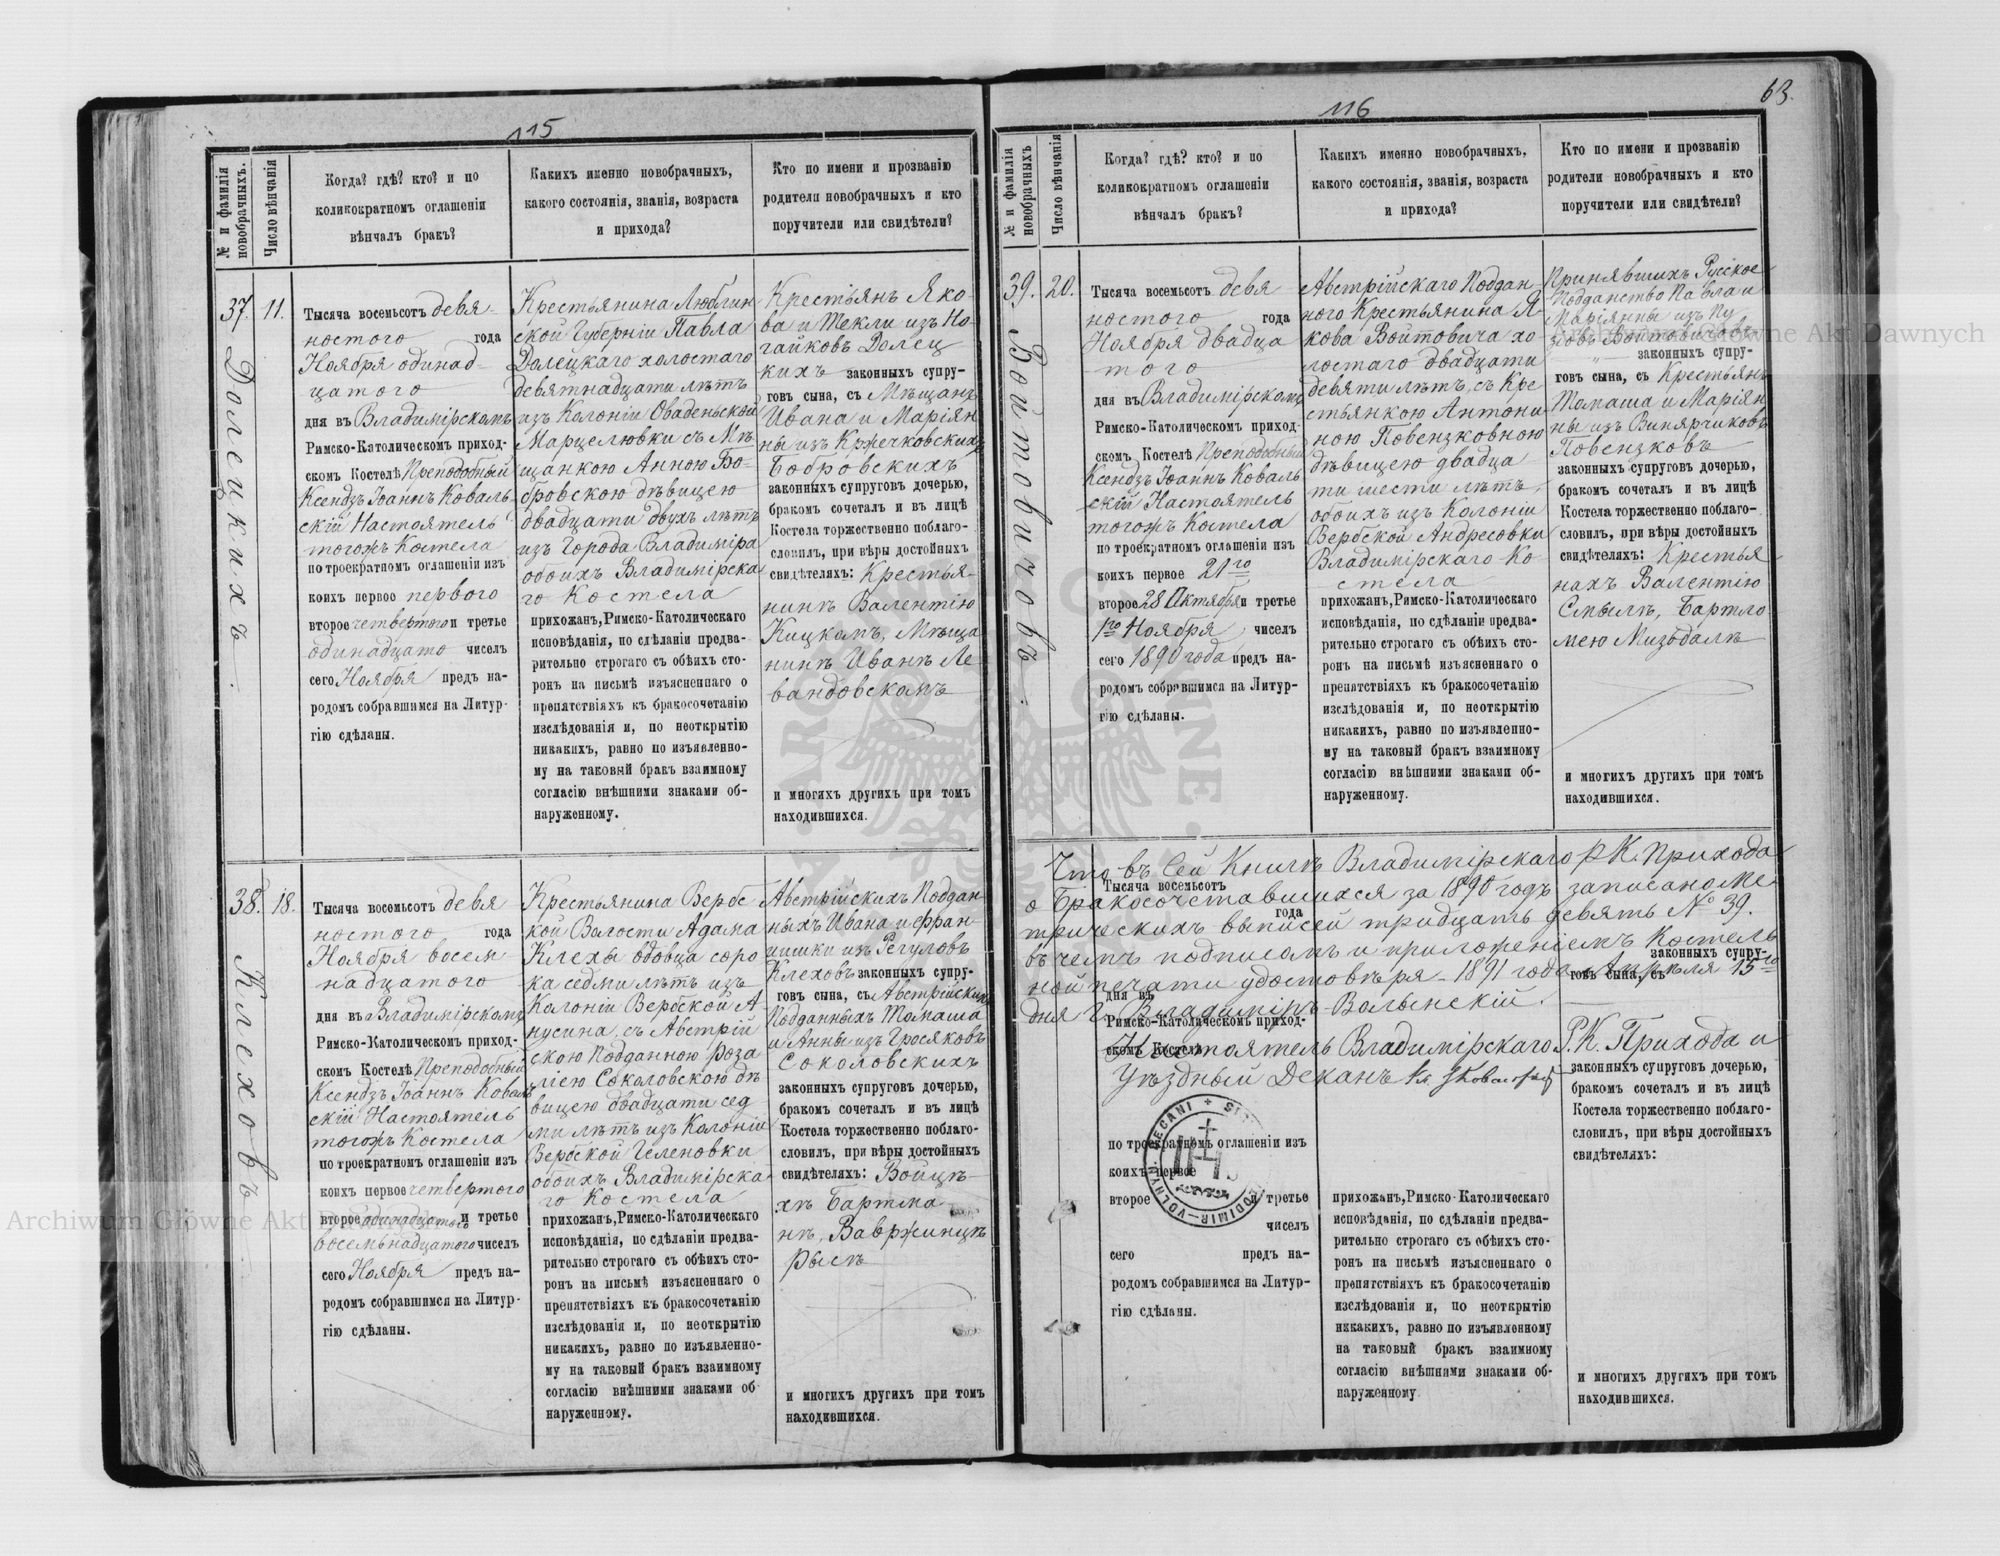 63.
115
№ и фамилія новобрачныхъ.
Число вѣнчанія
Когда? гдѣ? кто? и по
коликократномъ оглашеніи
вѣнчалъ бракъ?
Какихъ именно новобрачныхъ,
какого состоянія, званія, возраста
и прихода?
Кто по имени и прозванію
родители новобрачныхъ и кто
поручители или свидѣтели?
37.
Долецкихъ.
11.
Тысяча восемьсотъ девя
ностого года
Ноября одинад-
цатого
дня въ Владимірскомъ
Римско-Католическомъ приход-
скомъ Костелѣ Преподобный
Ксендзъ Іоаннъ Коваль-
скій Настоятель
тогожъ Костела
по троекратномъ оглашеніи изъ
коихъ первое первого
второе четвертого и третье
одинадцато чиселъ
сего Ноября предъ на-
родомъ собравшимся на Литур-
гію сдѣланы.
Крестьянина Люблин
ской Губерніи Павла
Долецкаго холостаго
девятнадцати лѣтъ
изъ Колоніи Оваденьской
Марцелювки съ Мѣ
щанкою Анною Бо-
бровскою дѣвицею
двадцати двухъ лѣтъ
изъ Города Владиміра
обоихъ Владимірска
го Костела
прихожанъ, Римско-Католическаго
исповѣданія, по сдѣланіи предва-
рительно строгаго съ обѣихъ сто-
ронъ на письмѣ изъясненнаго о
препятствіяхъ къ бракосочетанію
изслѣдованія и, по неоткрытію
никакихъ, равно по изъявленно-
му на таковый бракъ взаимному
согласію внѣшними знаками об-
наруженному.
Крестьянъ Яко-
ва и Текли изъ Но-
гайковъ Долец
кихъ законныхъ супру-
говъ сына, съ Мѣщанъ
Ивана и Маріян
ны изъ Кржечковскихъ
Бобровскихъ
законныхъ супруговъ дочерью,
бракомъ сочеталъ и въ лицѣ
Костела торжественно поблаго-
словилъ, при вѣры достойныхъ
свидѣтеляхъ: Крестья-
нинѣ Валентію
Кицкомъ, Мѣща
нинѣ Иванѣ Ле-
вандовскомъ
и многихъ другихъ при томъ
находившихся.
38.
Клеховъ
18.
Тысяча восемьсотъ девя
ностого года
Ноября восем
надцатого
дня въ Владимірскомъ
Римско-Католическомъ приход-
скомъ Костелѣ Преподобный
Ксендзъ Іоаннъ Коваль
скій Настоятель
тогожъ Костела
по троекратномъ оглашеніи изъ
коихъ первое четвертого
второе одинадцатого и третье
восемьнадцатого чиселъ
сего Ноября предъ на-
родомъ собравшимся на Литур-
гію сдѣланы.
Крестьянина Вербс
кой Волости Адама
Клехы вдовца соро
ка седми лѣтъ изъ
Колоніи Вербской А-
нусина, съ Австрій
скою Подданною Роза
ліею Соколовскою дѣ
вицею двадцати сед
ми лѣтъ изъ Колоніи
Вербской Геленовки
обоихъ Владимірска
го Костела
прихожанъ, Римско-Католическаго
исповѣданія, по сдѣланіи предва-
рительно строгаго съ обѣихъ сто-
ронъ на письмѣ изъясненнаго о
препятствіяхъ къ бракосочетанію
изслѣдованія и, по неоткрытію
никакихъ, равно по изъявленно-
му на таковый бракъ взаимному
согласію внѣшними знаками об
наруженному.
Австрійскихъ Поддан-
ныхъ Ивана и Фран
цишки изъ Регуловъ
Клеховъ законныхъ супру-
говъ сына, съ Австрійскихъ
Подданныхъ Томаша
и Анны изъ Гросяковъ
Соколовскихъ
законныхъ супруговъ дочерью,
бракомъ сочеталъ и въ лицѣ
Костела торжественно поблаго-
словилъ, при вѣры достойныхъ
свидѣтеляхъ: Войцѣ-
хѣ Бартма
нѣ, Вавржинцѣ
Рысѣ
и многихъ другихъ при томъ
находившихся.
116
№ и фамилія новобрачныхъ
Число вѣнчанія
Когда? гдѣ? кто? и по
коликократномъ оглашеніи
вѣнчалъ бракъ?
Какихъ именно новобрачныхъ,
какого состоянія, званія, возраста
и прихода?
Кто по имени и прозванію
родители новобрачныхъ и кто
поручители или свидѣтели?
39.
Войтовичовъ.
20.
Тысяча восемьсотъ девя
ностого года
Ноября двадца
того
дня въ Владимірскомъ
Римско-Католическомъ приход-
скомъ Костелѣ Преподобный
Ксендзъ Іоаннъ Коваль
скій Настоятель
тогожъ Костела
по троекратномъ оглашеніи изъ
коихъ первое 21го
второе 28 Октября и третье
1го Ноября чиселъ
сего 1890 года предъ на-
родомъ собравшимся на Литур-
гію сдѣланы.
Австрійскаго Поддан-
ного Крестьянина Я
кова Войтовича хо-
лостаго двадцати
девяти лѣтъ, съ Кре
стьянкою Антони-
ною Повензковною
дѣвицею двадца
ти шести лѣтъ,
обоихъ изъ Колоніи
Вербской Андресовки
Владимірскаго Ко-
стела
прихожанъ, Римско-Католическаго
исповѣданія, по сдѣланіи предва-
рительно строгаго съ обѣихъ сто-
ронъ на письмѣ изъясненнаго о
препятствіяхъ къ бракосочетанію
изслѣдованія и, по неоткрытію
никакихъ, равно по изъявленно-
му на таковый бракъ взаимному
согласію внѣшними знаками об-
наруженному.
Принявшихъ Русское
Подданство Павла и
Маріянны изъ Пу
зіовъ Войтовичовъ
законныхъ супру-
говъ сына, съ Крестьянъ
Томаша и Маріян
ны изъ Винярчиковъ
Повензковъ
законныхъ супруговъ дочерью,
бракомъ сочеталъ и въ лицѣ
Костела торжественно поблаго-
словилъ, при вѣры достойныхъ
свидѣтеляхъ: Крестья
нахъ Валентію
Смылѣ, Бартло
мею Мизюдалѣ
и многихъ другихъ при томъ
находившихся.
Что въ сей Книгѣ Владимірскаго Р.К. Прихода
о Бракосочетавшихся за 1890 годъ записано Ме
трическихъ выписей тридцать девять № 39.
въ чемъ подписомъ и приложеніемъ Костель
ной печати удостовѣря- 1891 года Апрѣля 15го
дня Г. Владиміръ-Волынскій.
Настоятель Владимірскаго Р.К. Прихода и
Уѣздный Деканъ Кс. Ковальскій
Тысяча восемьсотъ
года
дня въ
Римско-Католическомъ приход-
скомъ Костелѣ
по троекратномъ оглашеніи изъ
коихъ первое
второе и третье
чиселъ
сего предъ на-
родомъ собравшимся на Литур-
гію сдѣланы.
прихожанъ, Римско-Католическаго
исповѣданія, по сдѣланіи предва-
рительно строгаго съ обѣихъ сто-
ронъ на письмѣ изъясненнаго о
препятствіяхъ къ бракосочетанію
изслѣдованія и, по неоткрытію
никакихъ, равно по изъявленному
на таковый бракъ взаимному
согласію внѣшними знаками об-
наруженному
законныхъ супру-
говъ сына, съ
законныхъ супруговъ дочерью,
бракомъ сочеталъ и въ лицѣ
Костела торжественно поблаго-
словилъ, при вѣры достойныхъ
свидѣтеляхъ:
и многихъ другихъ при томъ
находившихся.
Archiwum Główne Akt Dawnych
Archiwum Główne Akt Dawnych